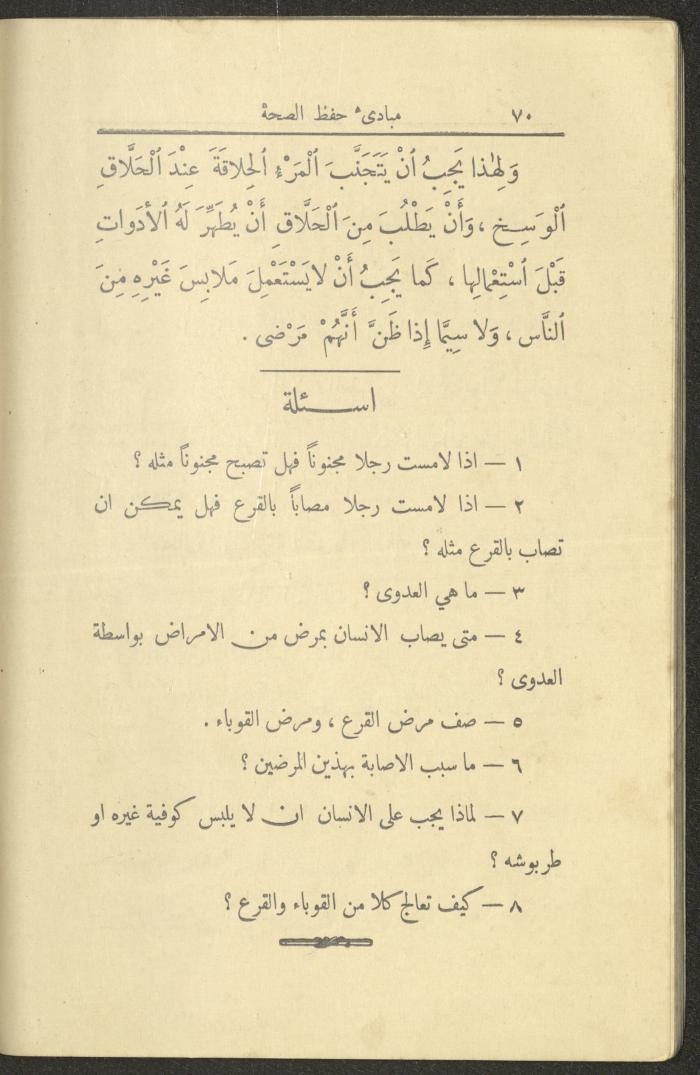 ٧٠ مبادىء حفظ الصحة
وَلِهٰذا يَجِبُ أَنْ يَتَجَنَّبَ ٱلْمَرْءُ ٱلحِلاقَةَ عِنْدَ ٱلْحَلَّاقِ
ٱلْوَسِخِ ، وَأَنْ يَطْلُبَ مِنَ ٱلْحَلَّاقِ أَنْ يُطَهِّرَ لَهُ ٱلأَدَواتِ
قَبْلَ ٱسْتِعْمالِها ، كَما يَجِبُ أَنْ لا يَسْتَعْمِلَ مَلابِسَ غَيْرِهِ مِنَ
ٱلنَّاسِ ، وَلا سِيَّما إِذا ظَنَّ أَنَّهُمْ مَرْضى .
اســئلة
١ — اذا لامست رجلا مجنوناً فهل تصبح مجنوناً مثله ؟
٢ — اذا لامست رجلا مصاباً بالقرع فهل يمكن ان
تصاب بالقرع مثله ؟
٣ — ما هي العدوى ؟
٤ — متى يصاب الانسان بمرض من الامراض بواسطة
العدوى ؟
٥ — صف مرض القرع ، ومرض القوباء .
٦ — ما سبب الاصابة بهذين المرضين ؟
٧ — لماذا يجب على الانسان ان لا يلبس كوفية غيره او
طربوشه ؟
٨ — كيف تعالج كلا من القوباء والقرع ؟